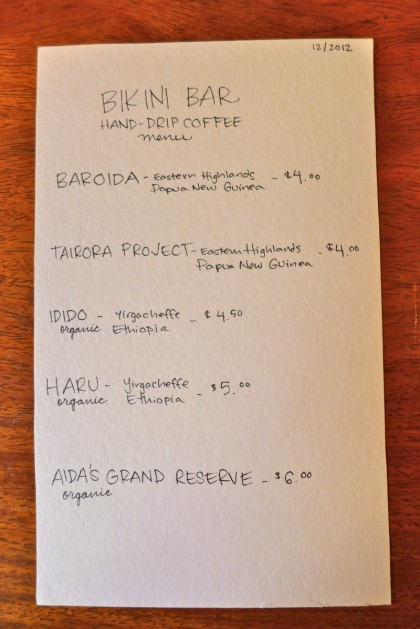 12/2012
BIKINI BAR
HAND-DRIP COFFEE
menu
BAROIDA - Eastern Highlands - $4.00
Papua New Guinea
TAIRORA PROJECT - Eastern Highlands - $4.00
Papua New Guinea
IDIDO - Yirgacheffe - $4.50
organic Ethiopia
HARU - Yirgacheffe - $5.00
organic Ethiopia
AIDA'S GRAND RESERVE - $6.00
organic